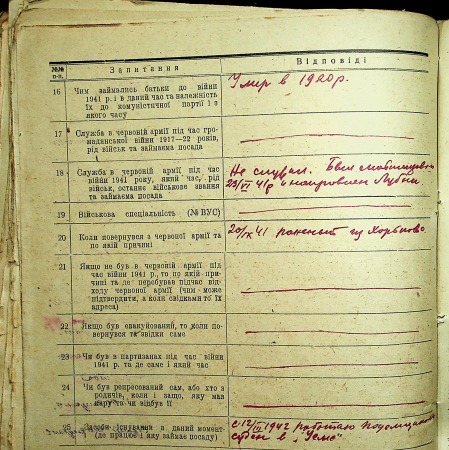 №№ п-п.
Запитання
Відповіді
16
Чим займались батьки до війни
1941 р. і в даний час та належність
їх до комуністичної партії і з
якого часу
Умер в 1920 р.
17
Служба в червоній армії під час гро-
мадянської війни 1917—22 років,
рід військ та займаєма посада
18
Служба в червоній армії під час
війни 1941 року, який час, рід
військ, останнє військове звання
та займаєма посада
Не служил. Был мобилизован
23/VI 41 р и направлен Лубни.
19
Військова спеціальність (№ ВУС)
20
Коли повернувся з червоної армії та
по якій причині
20/IX 41
из
21
Якщо не був в червоній армії під
час війни 1941 р., то по якій при-
чині та де перебував підчас від-
ходу червоної армії (чим може
підтвердити, а коли свідками то їх
адреса)
22
Якщо був евакуйований, то коли по-
вернувся та звідки саме
23
Чи був в партизанах під час війни
1941 р. та де саме і який час
24
Чи був репресований сам, або хто з
родичів, коли і защо, яку мав
кару та чи відбув її
25
Засоби існування в даний момент
(де працює і яку займає посаду)
с 12/ 1942 работаю
в